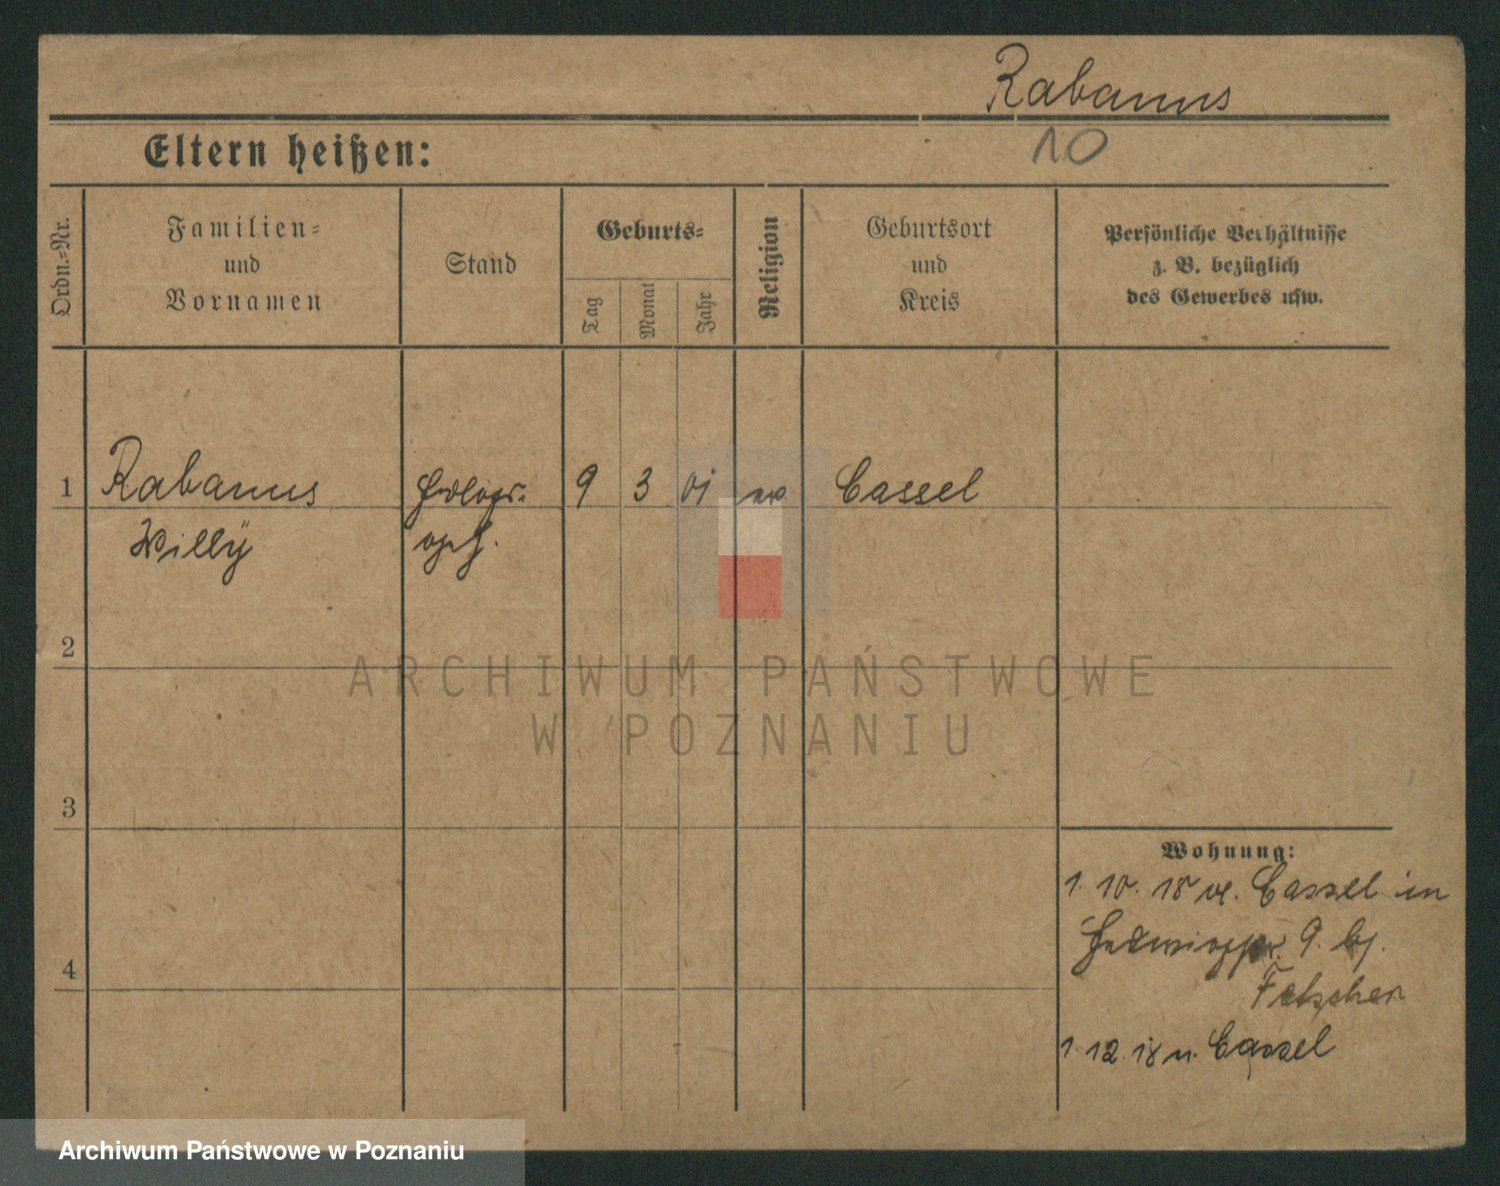 Rabanus
Eltern heißen:
10
Ordn.-Nr.
Familien-
und
Vornamen
Stand
Geburts-
Tag
Monat
Jahr
Religion
Geburtsort
und
Kreis
Persönliche Verhältnisse
z. B. bezüglich
des Gewerbes usw.
1
Rabanus
9
3
01
ev.
Cassel
Willÿ
2
ARCHIWUM PAŃSTWOWE
W POZNANIU
3
Wohnung:
1. 10. 18 v. Cassel in
9. bj.
4
Fetscher
1. 12. 18 n. Cassel
Archiwum Państwowe w Poznaniu